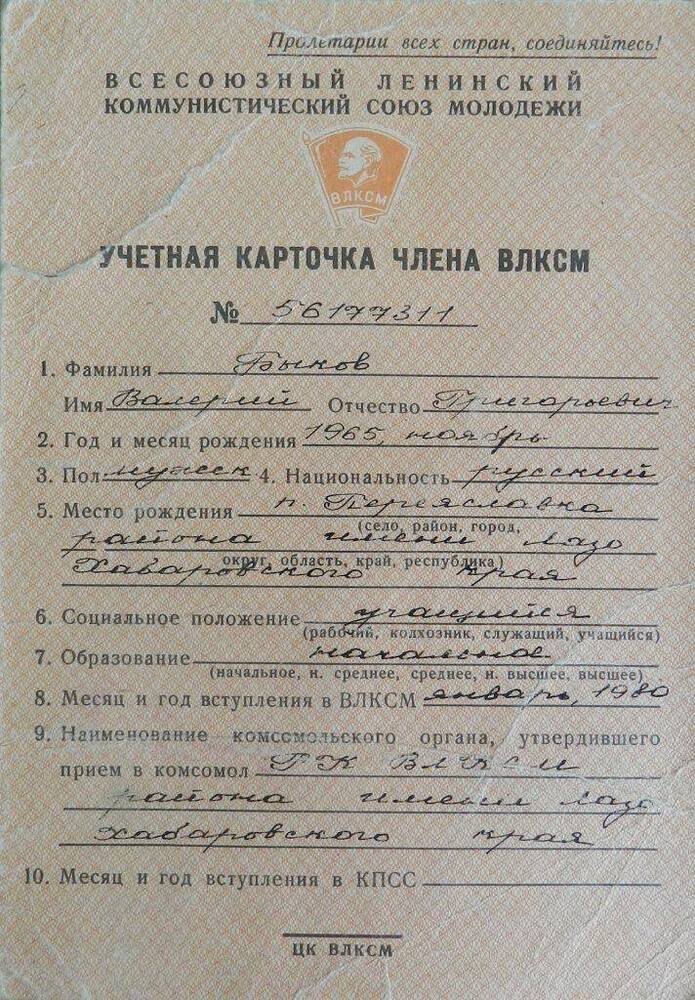 Пролетарии всех стран, соединяйтесь!
ВСЕСОЮЗНЫЙ ЛЕНИНСКИЙ
КОММУНИСТИЧЕСКИЙ СОЮЗ МОЛОДЕЖИ
ВЛКСМ
УЧЕТНАЯ КАРТОЧКА ЧЛЕНА ВЛКСМ
№ 56177311
1. Фамилия Быков
Имя Валерий Отчество Григорьевич
2. Год и месяц рождения 1965, ноябрь
3. Пол мужск 4. Национальность русский
5. Место рождения п. Переяславка
(село, район, город,
района имени Лазо
округ, область, край, республика)
Хабаровского края
6. Социальное положение учащийся
(рабочий, колхозник, служащий, учащийся)
7. Образование начальное
(начальное, н. среднее, среднее, н. высшее, высшее)
8. Месяц и год вступления в ВЛКСМ январь, 1980
9. Наименование комсомольского органа, утвердившего
прием в комсомол РК ВЛКСМ
района имени Лазо
Хабаровского края
10. Месяц и год вступления в КПСС
ЦК ВЛКСМ